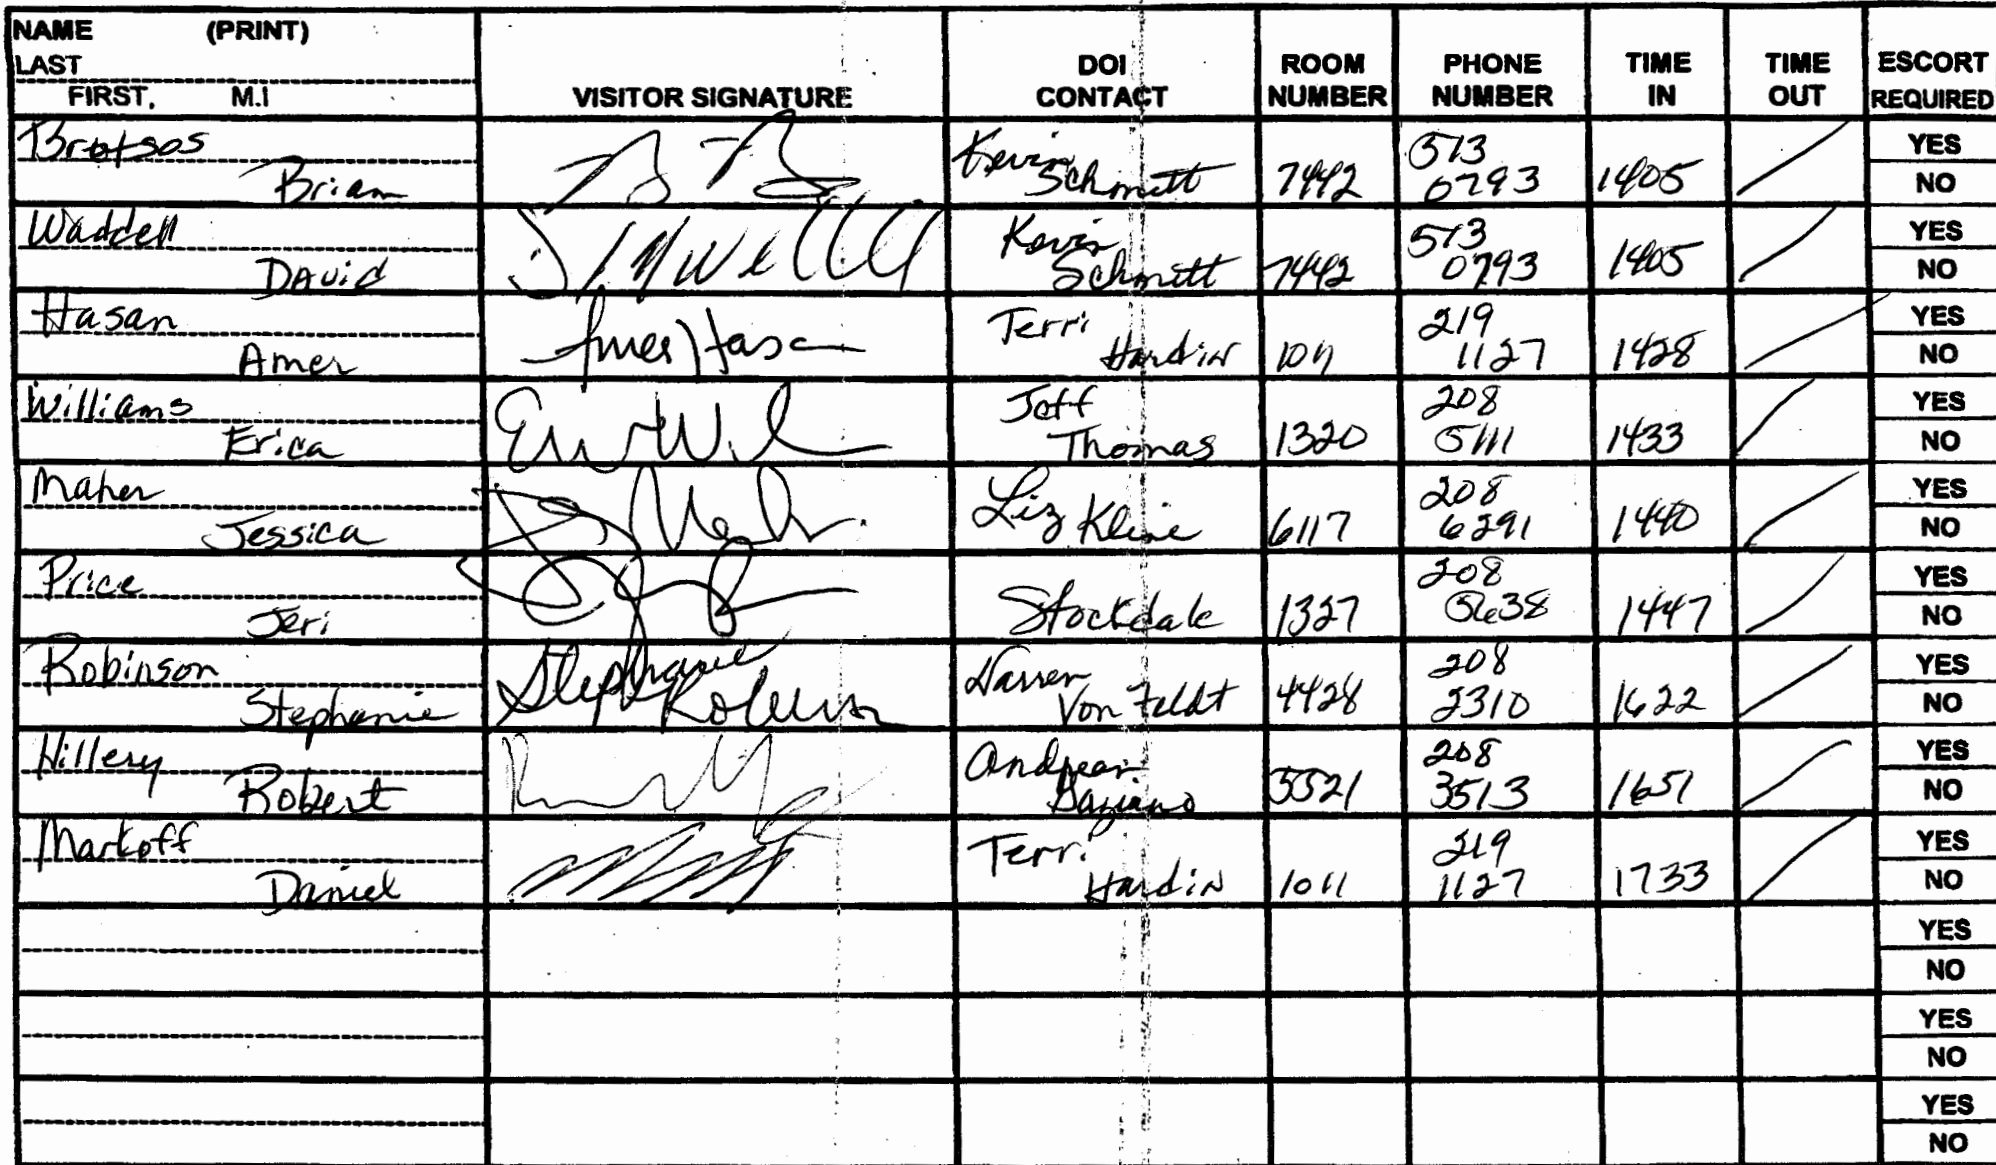 NAME (PRINT)
LAST
FIRST, M.I
VISITOR SIGNATURE
DOI
CONTACT
ROOM
NUMBER
PHONE
NUMBER
TIME
IN
TIME
OUT
ESCORT
REQUIRED
Brotsos
Brian
Kevin
Schmitt
7442
513
0793
1405
YES
NO
Waddell
David
Kevin
Schmitt
7442
513
0793
1405
YES
NO
Hasan
Amer
Amer Hasan
Terri
Hardin
1011
219
1127
1428
YES
NO
Williams
Erica
Jeff
Thomas
1320
208
5111
1433
YES
NO
Maher
Jessica
Liz Kline
6117
208
6291
1440
YES
NO
Price
Jeri
Stockdale
1327
208
5638
1447
YES
NO
Robinson
Stephanie
Stephanie
Robinson
Darren
Von Feldt
4428
208
2310
1622
YES
NO
Hillery
Robert
5521
208
3513
1651
YES
NO
Markoff
Daniel
Terri
Hardin
1011
219
1127
1733
YES
NO
YES
NO
YES
NO
YES
NO